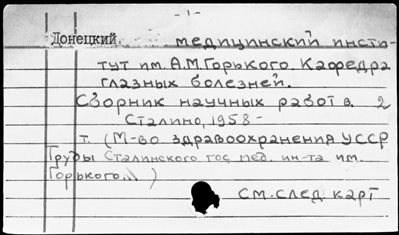 - 1 -
Донецкий медицинский инсти-
тут им. А.М.Горького. Кафедра
глазных болезней.
Сборник научных работ в. 2
Сталино, 1958-
т. (М-во здравоохранения УССР
Труды Сталинского гос мед. ин-та им.
Горького... )
см. след. карт